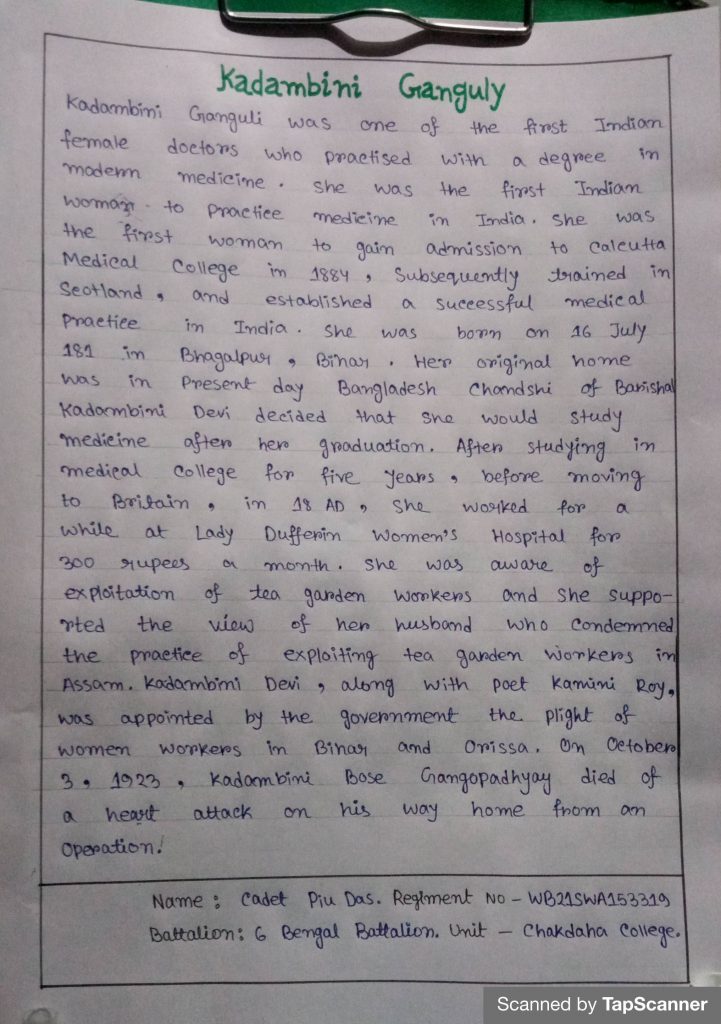 Kadambini Ganguly
Kadambini Ganguli was one of the first Indian
female doctors who practised with a degree in
modern medicine. She was the first Indian
woman to practice medicine in India. She was
the first woman to gain admission to Calcutta
Medical College in 1884, Subsequently trained in
Scotland, and established a successful medical
Practice in India. She was born on 16 July
181 in Bhagalpur, Bihar. Her original home
was in Present day Bangladesh Chandshi of Barishal
Kadambini Devi decided that she would study
medicine after her graduation. After studying in
medical College for five years, before moving
to Britain, in 18 AD, She worked for a
while at Lady Dufferin Women's Hospital for
300 rupees a month. She was aware of
exploitation of tea garden workers and she suppo-
rted the view of her husband who condemned
the practice of exploiting tea garden workers in
Assam. Kadambini Devi, along with poet Kamini Roy,
was appointed by the government the plight of
women workers in Bihar and Orissa. On October
3, 1923, Kadambini Bose Gangopadhyay died of
a heart attack on his way home from an
Operation.
Name: Cadet Piu Das. Regiment No - WB21SWA153319
Battalion: 6 Bengal Battalion. Unit - Chakdaha College.
Scanned by TapScanner